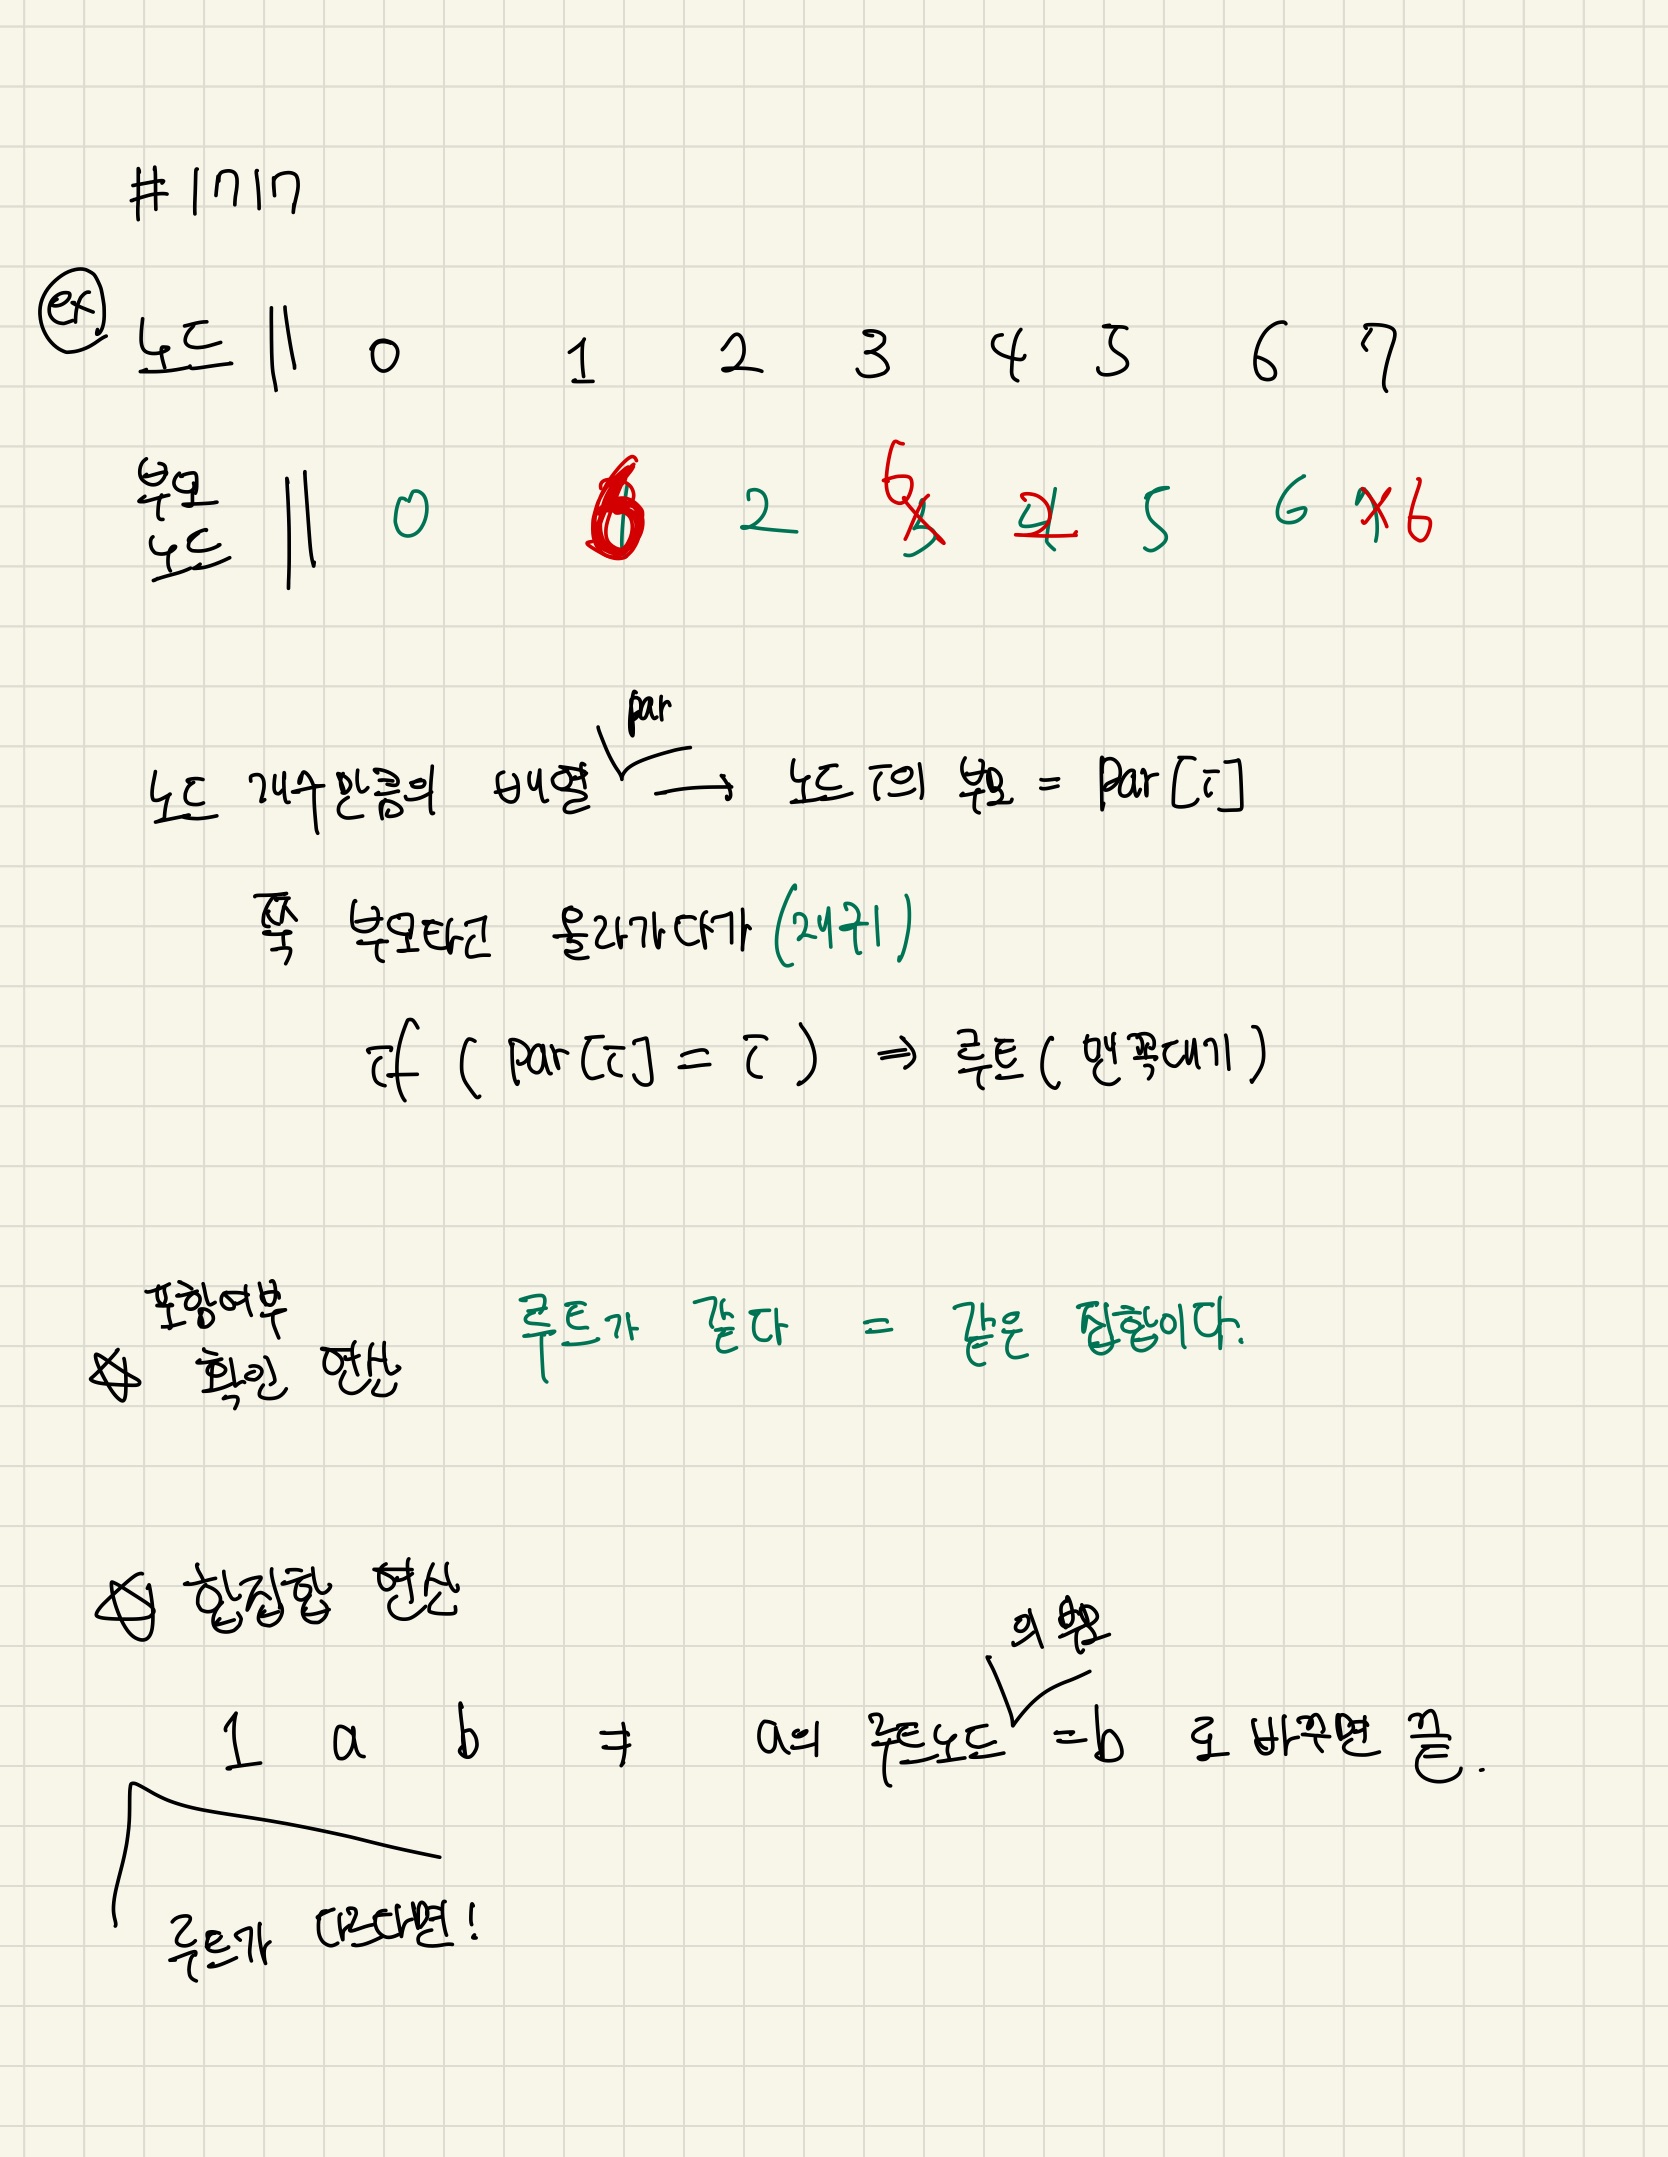 #1717
ex
노드 || 0 1 2 3 4 5 6 7
부모
노드 || 0 6 2 3 6 4 2 5 6 7 6
par
노드 개수만큼의 배열 → 노드 i의 부모 = par[i]
쭉 부모타고 올라가다가 (재귀)
if ( par[i] = i ) ⇒ 루트( 맨꼭대기 )
포함여부
☆ 확인 연산 루트가 같다 = 같은 집합이다.
☆ 합집합 연산
의 부모
1 a b ⇒ a의 루트노드 = b 로 바꾸면 끝.
루트가 다르다면!